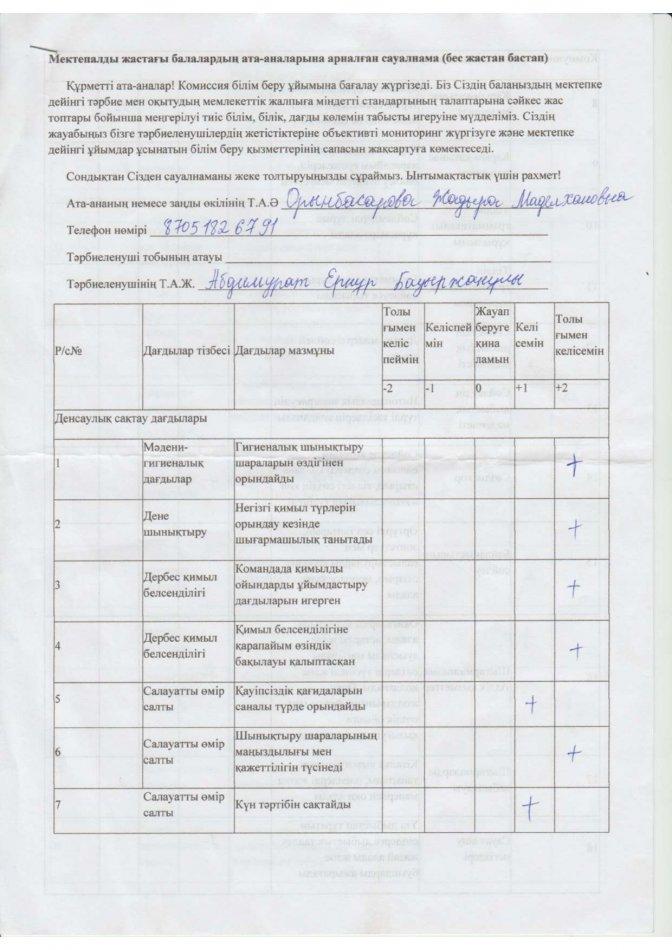 Мектепалды жастағы балалардың ата-аналарына арналған сауалнама (бес жастан бастап)
Құрметті ата-аналар! Комиссия білім беру ұйымына бағалау жүргізеді. Біз Сіздің балаңыздың мектепке
дейінгі тәрбие мен оқытудың мемлекеттік жалпыға міндетті стандартының талаптарына сәйкес жас
топтары бойынша меңгерілуі тиіс білім, білік, дағды көлемін табысты игеруіне мүдделіміз. Сіздің
жауабыңыз бізге тәрбиеленушілердің жетістіктеріне объективті мониторинг жүргізуге және мектепке
дейінгі ұйымдар ұсынатын білім беру қызметтерінің сапасын жақсартуға көмектеседі.
Сондықтан Сізден сауалнаманы жеке толтыруыңызды сұраймыз. Ынтымақтастық үшін рахмет!
Ата-ананың немесе заңды өкілінің Т.А.Ә Орынбасарова Жадыра Маделхановна
Телефон нөмірі 8705 182 67 91
Тәрбиеленуші тобының атауы
Тәрбиеленушінің Т.А.Ж. Абдимурат Ернур Бауыржанұлы
Р/с№ Дағдылар тізбесі Дағдылар мазмұны
Толы
ғымен
келіс
пеймін
Келіспей
мін
Жауап
беруге
қина
ламын
Келі
семін
Толы
ғымен
келісемін
-2 -1 0 +1 +2
Денсаулық сақтау дағдылары
1
Мәдени-
гигиеналық
дағдылар
Гигиеналық шынықтыру
шараларын өздігінен
орындайды
+
2
Дене
шынықтыру
Негізгі қимыл түрлерін
орындау кезінде
шығармашылық танытады
+
3
Дербес қимыл
белсенділігі
Командада қимылды
ойындарды ұйымдастыру
дағдыларын игерген
+
4
Дербес қимыл
белсенділігі
Қимыл белсенділігіне
қарапайым өзіндік
бақылауы қалыптасқан
+
5
Салауатты өмір
салты
Қауіпсіздік қағидаларын
саналы түрде орындайды
+
6
Салауатты өмір
салты
Шынықтыру шараларының
маңыздылығы мен
қажеттілігін түсінеді
+
7
Салауатты өмір
салты
Күн тәртібін сақтайды
+